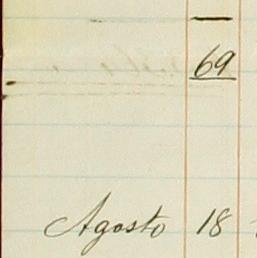 69
Agosto 18